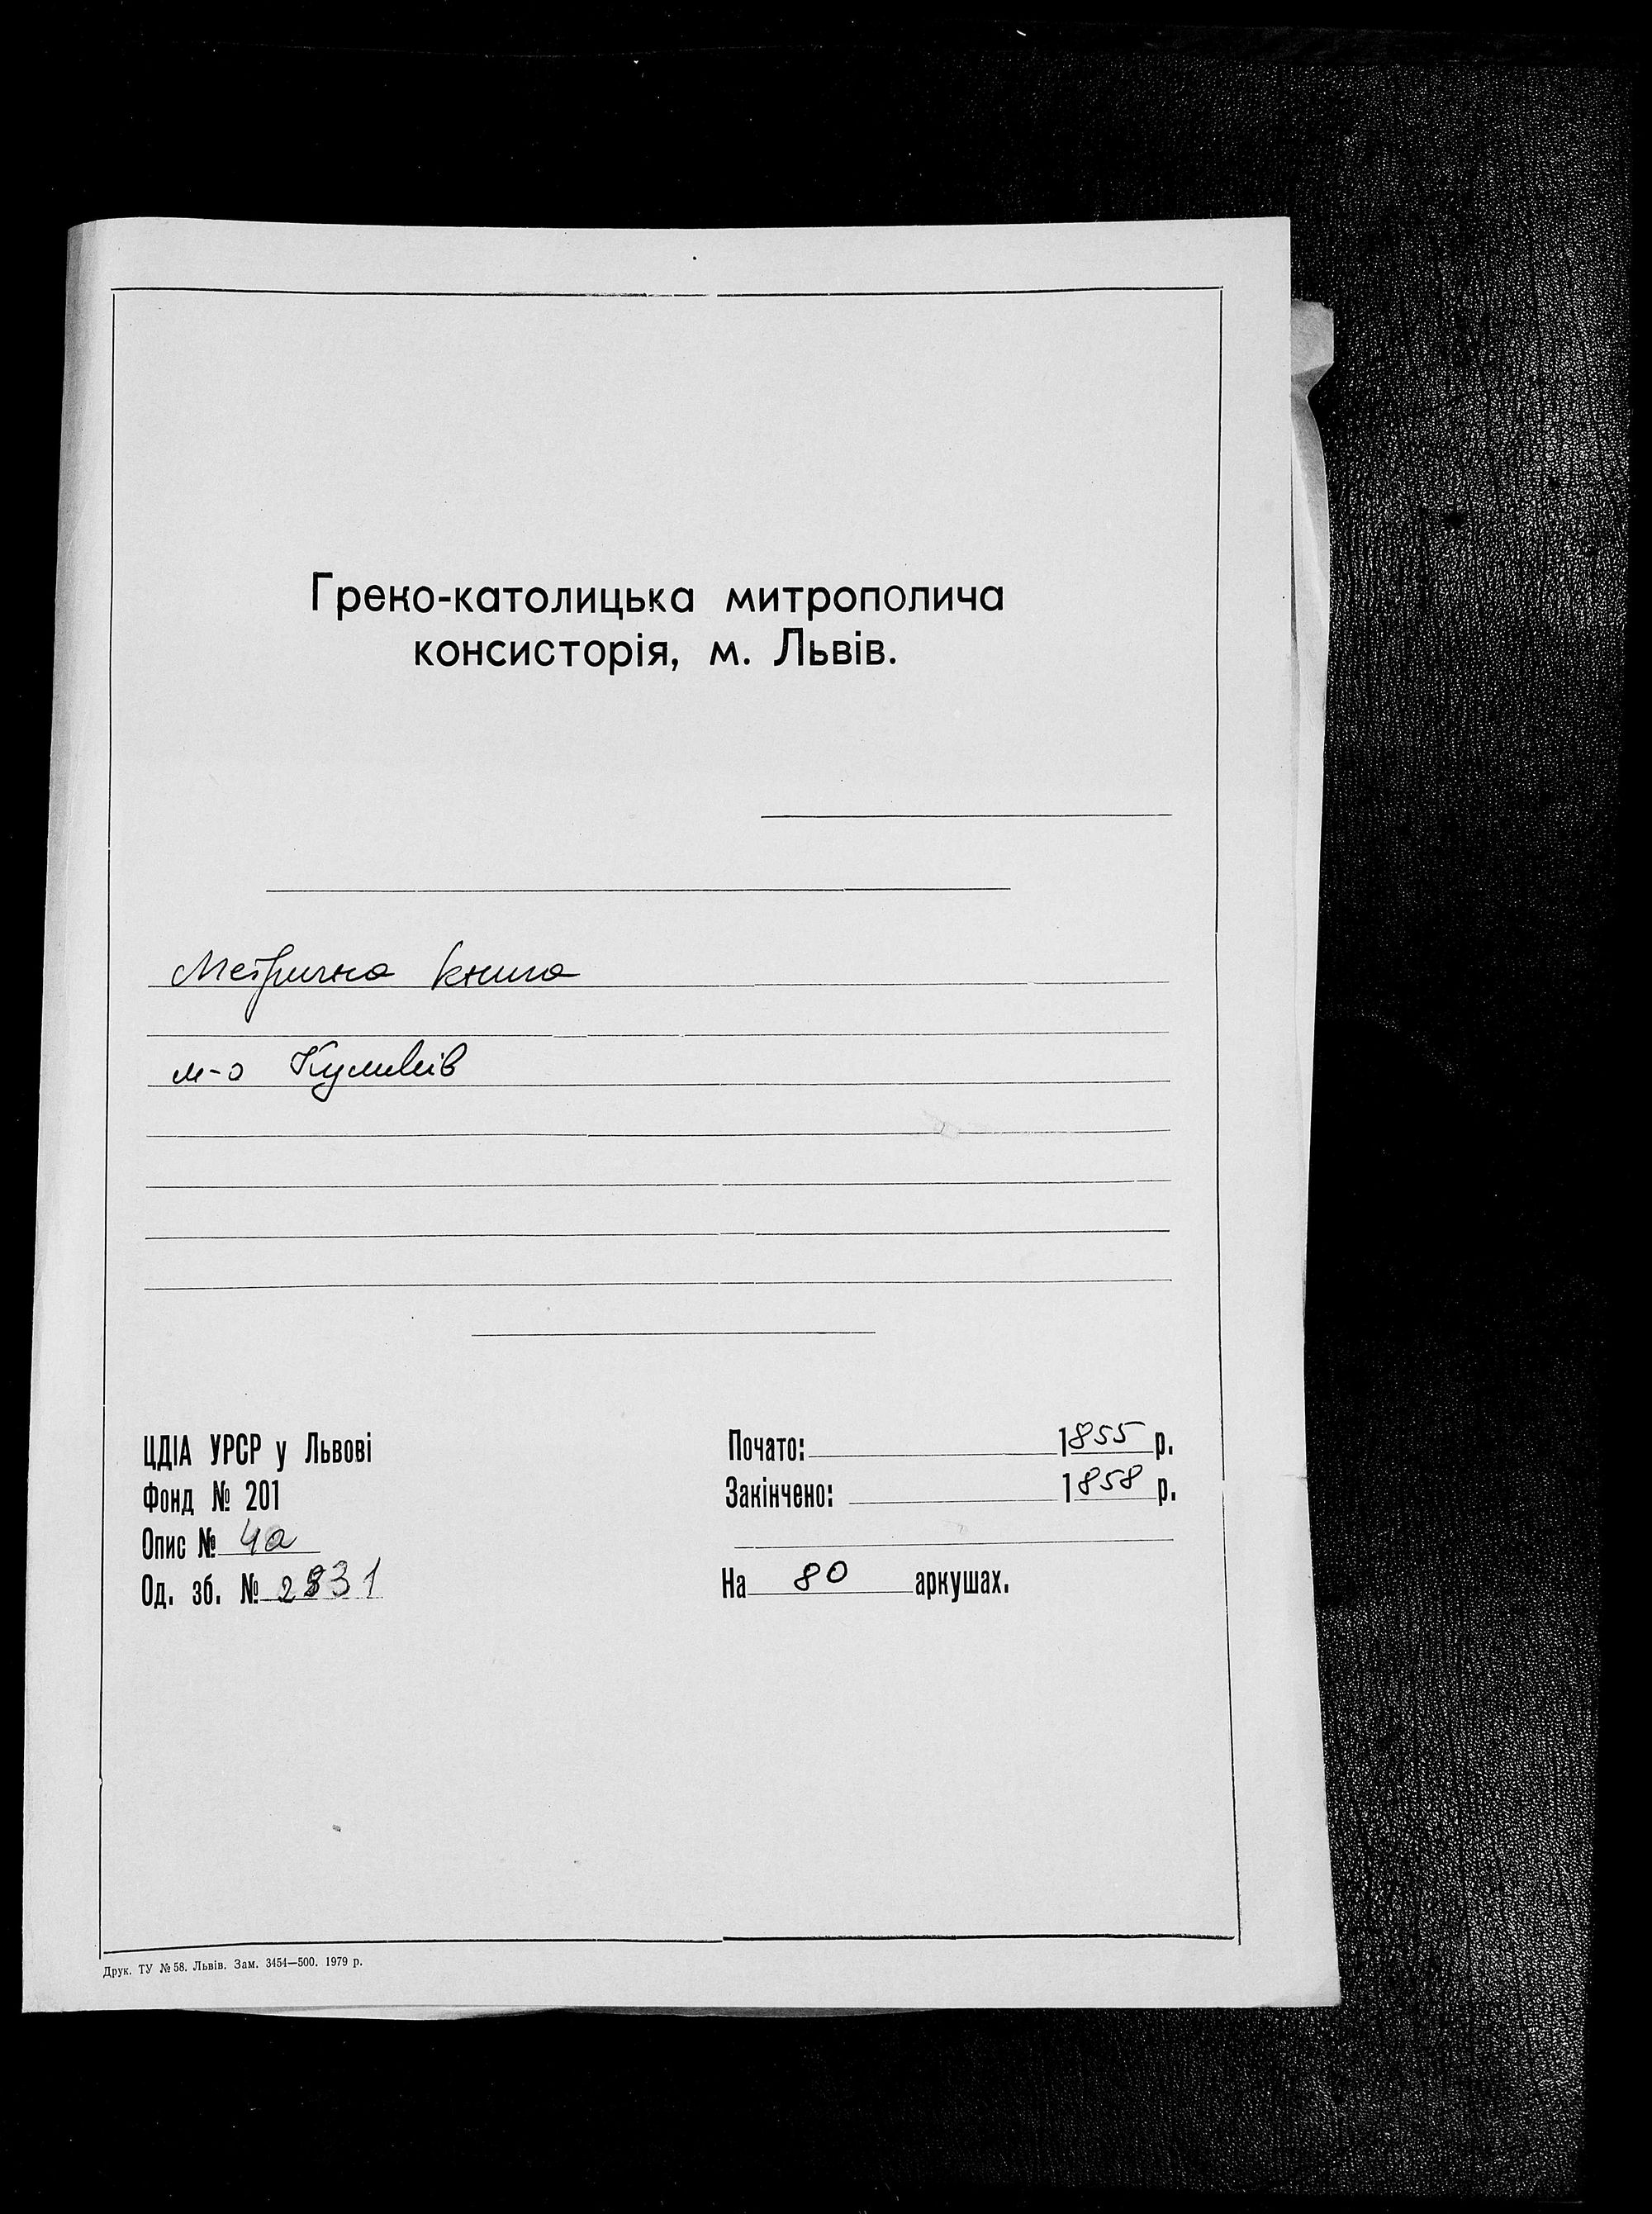 Греко-католицька митрополича
консисторія, м. Львів.
Метрична книга
м-о Куликів
ЦДІА УРСР у Львові
Фонд № 201
Опис № 4а
Од. зб. № 2831
Почато: 1855 р.
Закінчено: 1858 р.
На 80 аркушах.
Друк. ТУ № 58. Львів. Зам. 3454—500. 1979 р.